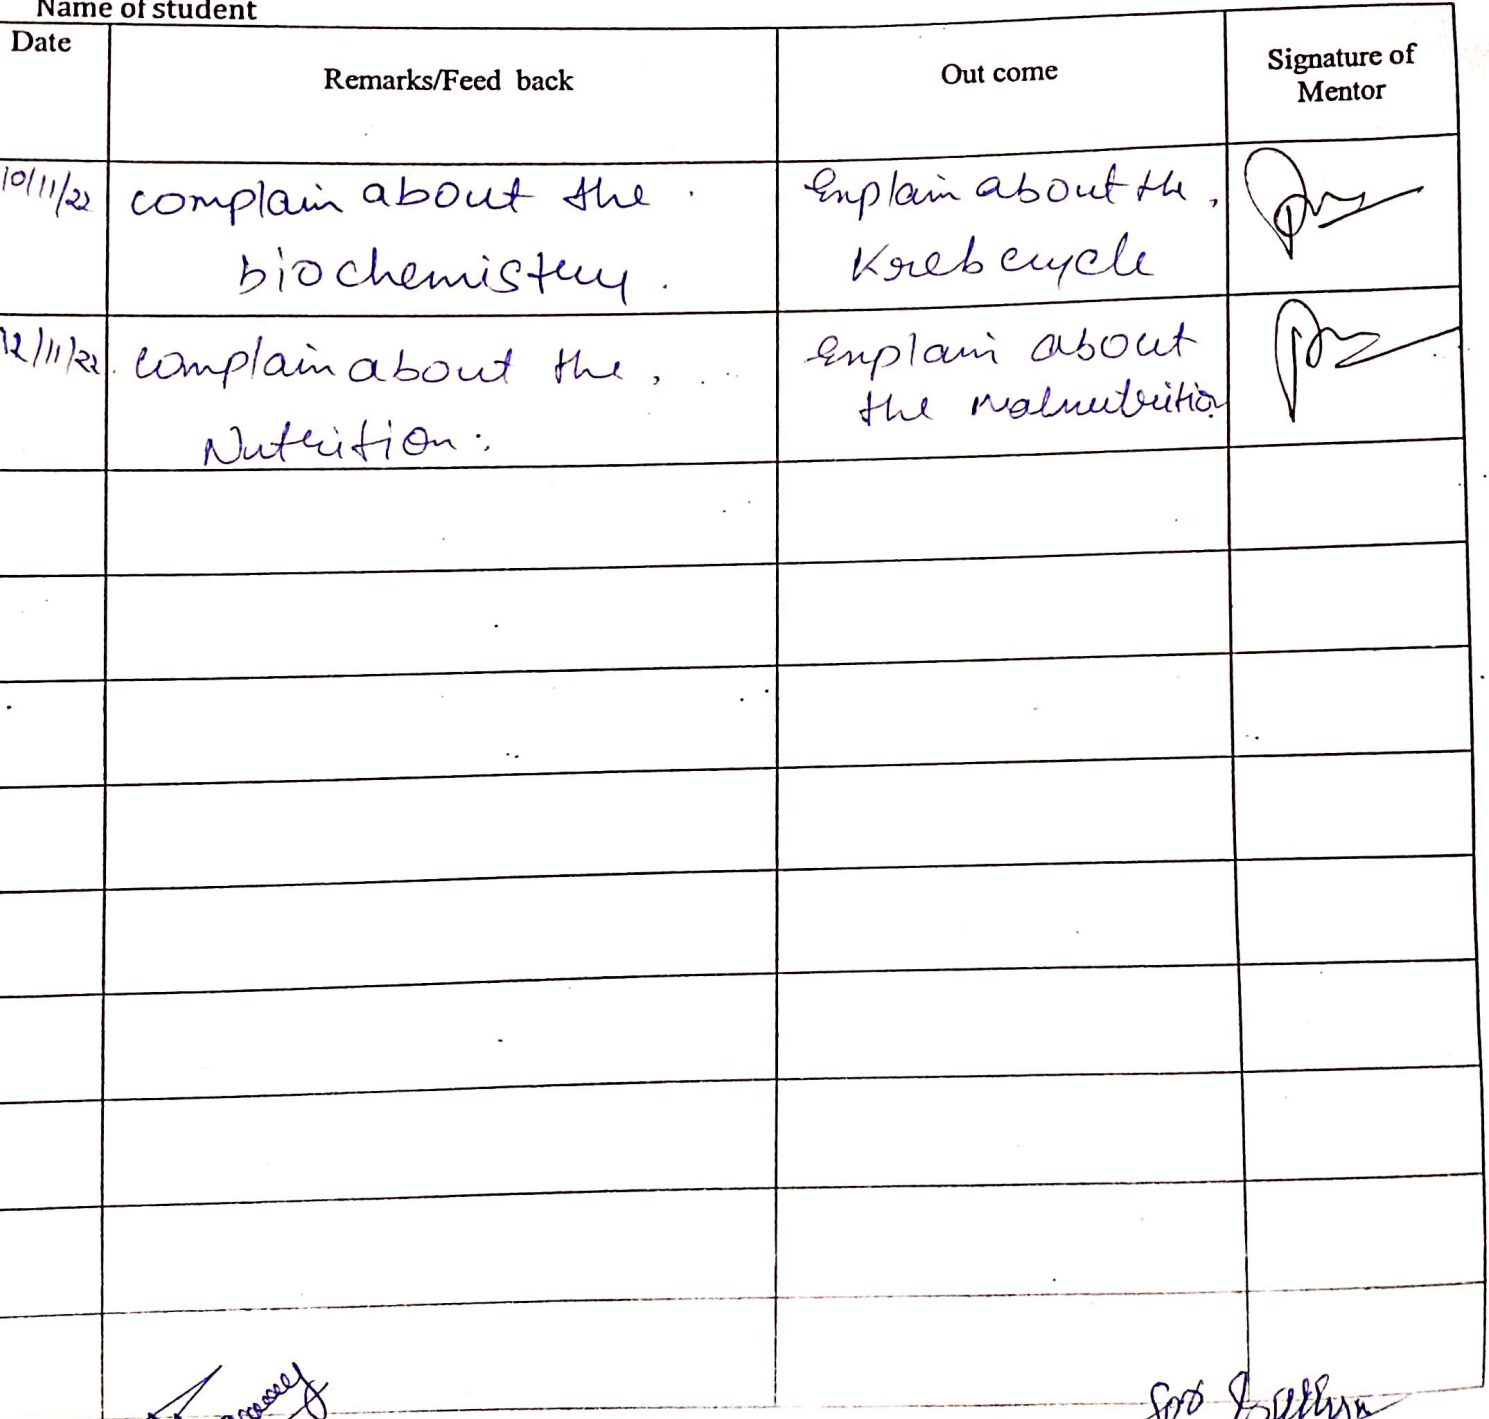 Name of student
Date
Remarks/Feed back
Out come
Signature of
Mentor
10/11/22
complain about the
biochemistry.
Explain about the,
Kreb cycle
12/11/22.
complain about the,
Nutrition:
Explain about
the malnutrition